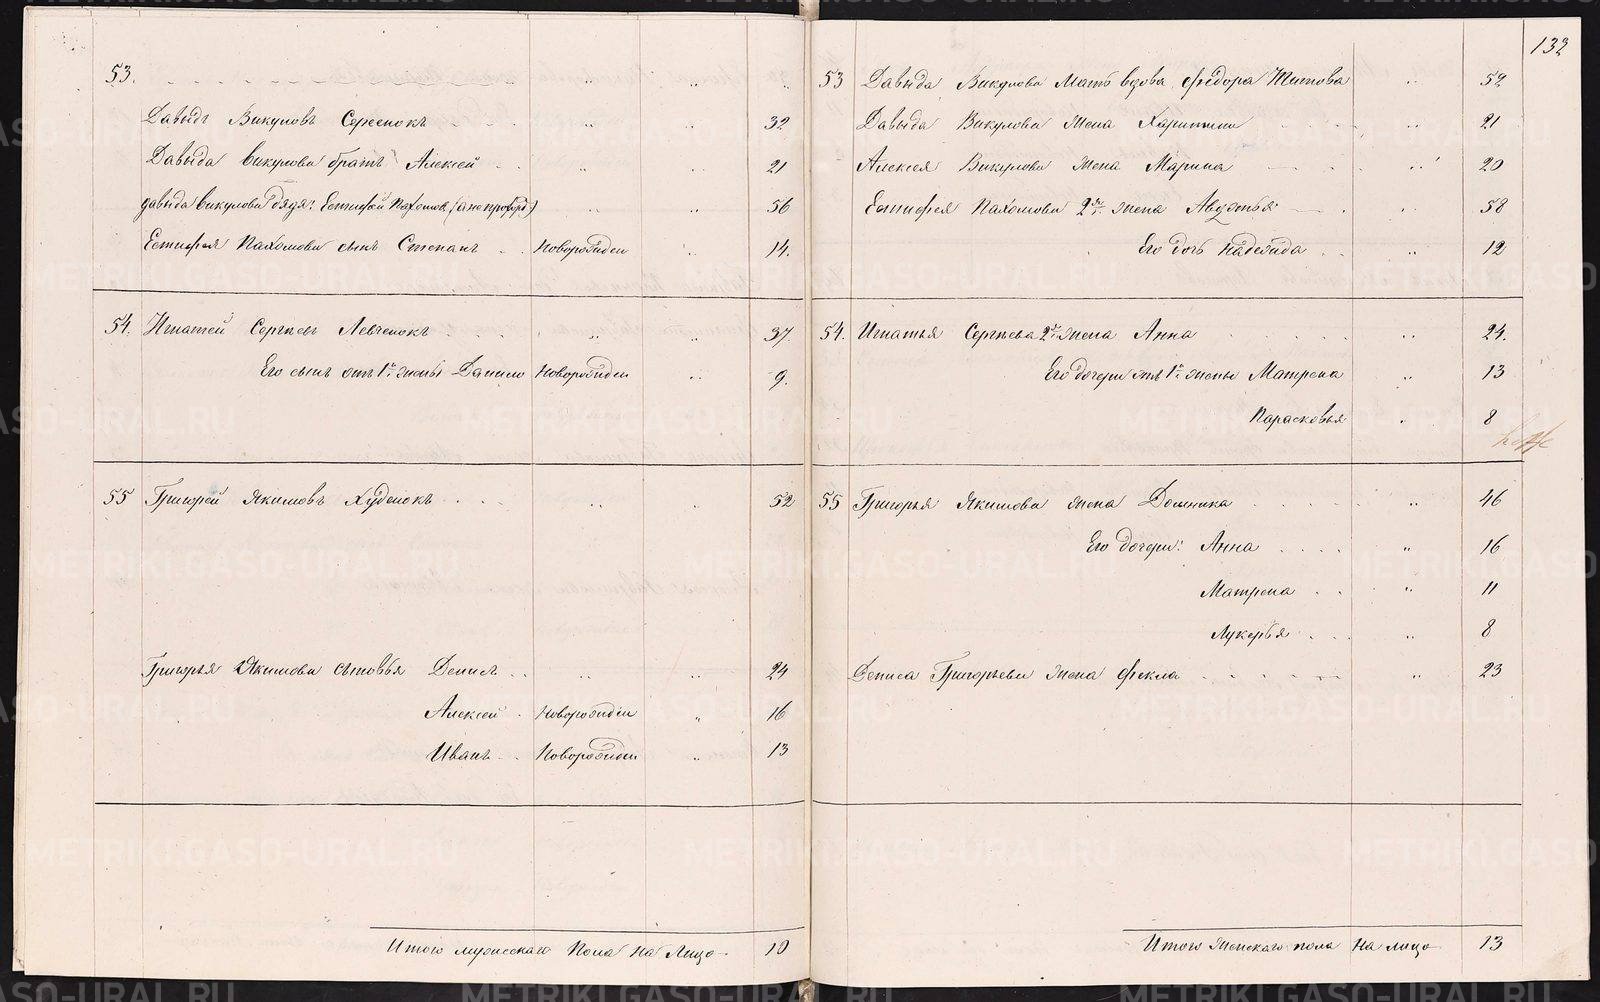 132
53.
Давыдъ Викуловъ Серженокъ 32
Давыда Викулова братъ Алексей 21
Давыда Викулова дядя: Естифей Пахомов 56
Естифея Пахомова сынъ Степанъ Новорожден 14.
54. Игнатей Сергеевъ Левченокъ 37.
Его сынъ отъ 1й жены Данило Новорожден 9.
55 Григорей Якимовъ Худенокъ 52
Григорья Якимова сыновья Денисъ 24
Алексей Новорожден 16
Иванъ Новорожден 13
Итого мужескаго Пола На Лицо 10
53 Давыда Викулова Мать вдова Федора Титова 52
Давыда Викулова жена Харитина 21
Алексея Викулова жена Марина 20
Естифея Пахомова 2я жена Авдотья 58
Его дочь Надежда 12
54. Игнатья Сергеева 2я жена Анна 24.
Его дочери отъ 1й жены Матрена 13
Парасковья 8
55 Григорья Якимова жена Домника 46
Его дочери: Анна 16
Матрена 11
Лукерья 8
Дениса Григорьева жена Фекла 23
Итого Женскаго пола На лицо 13
METRIKI.GASO-URAL.RU